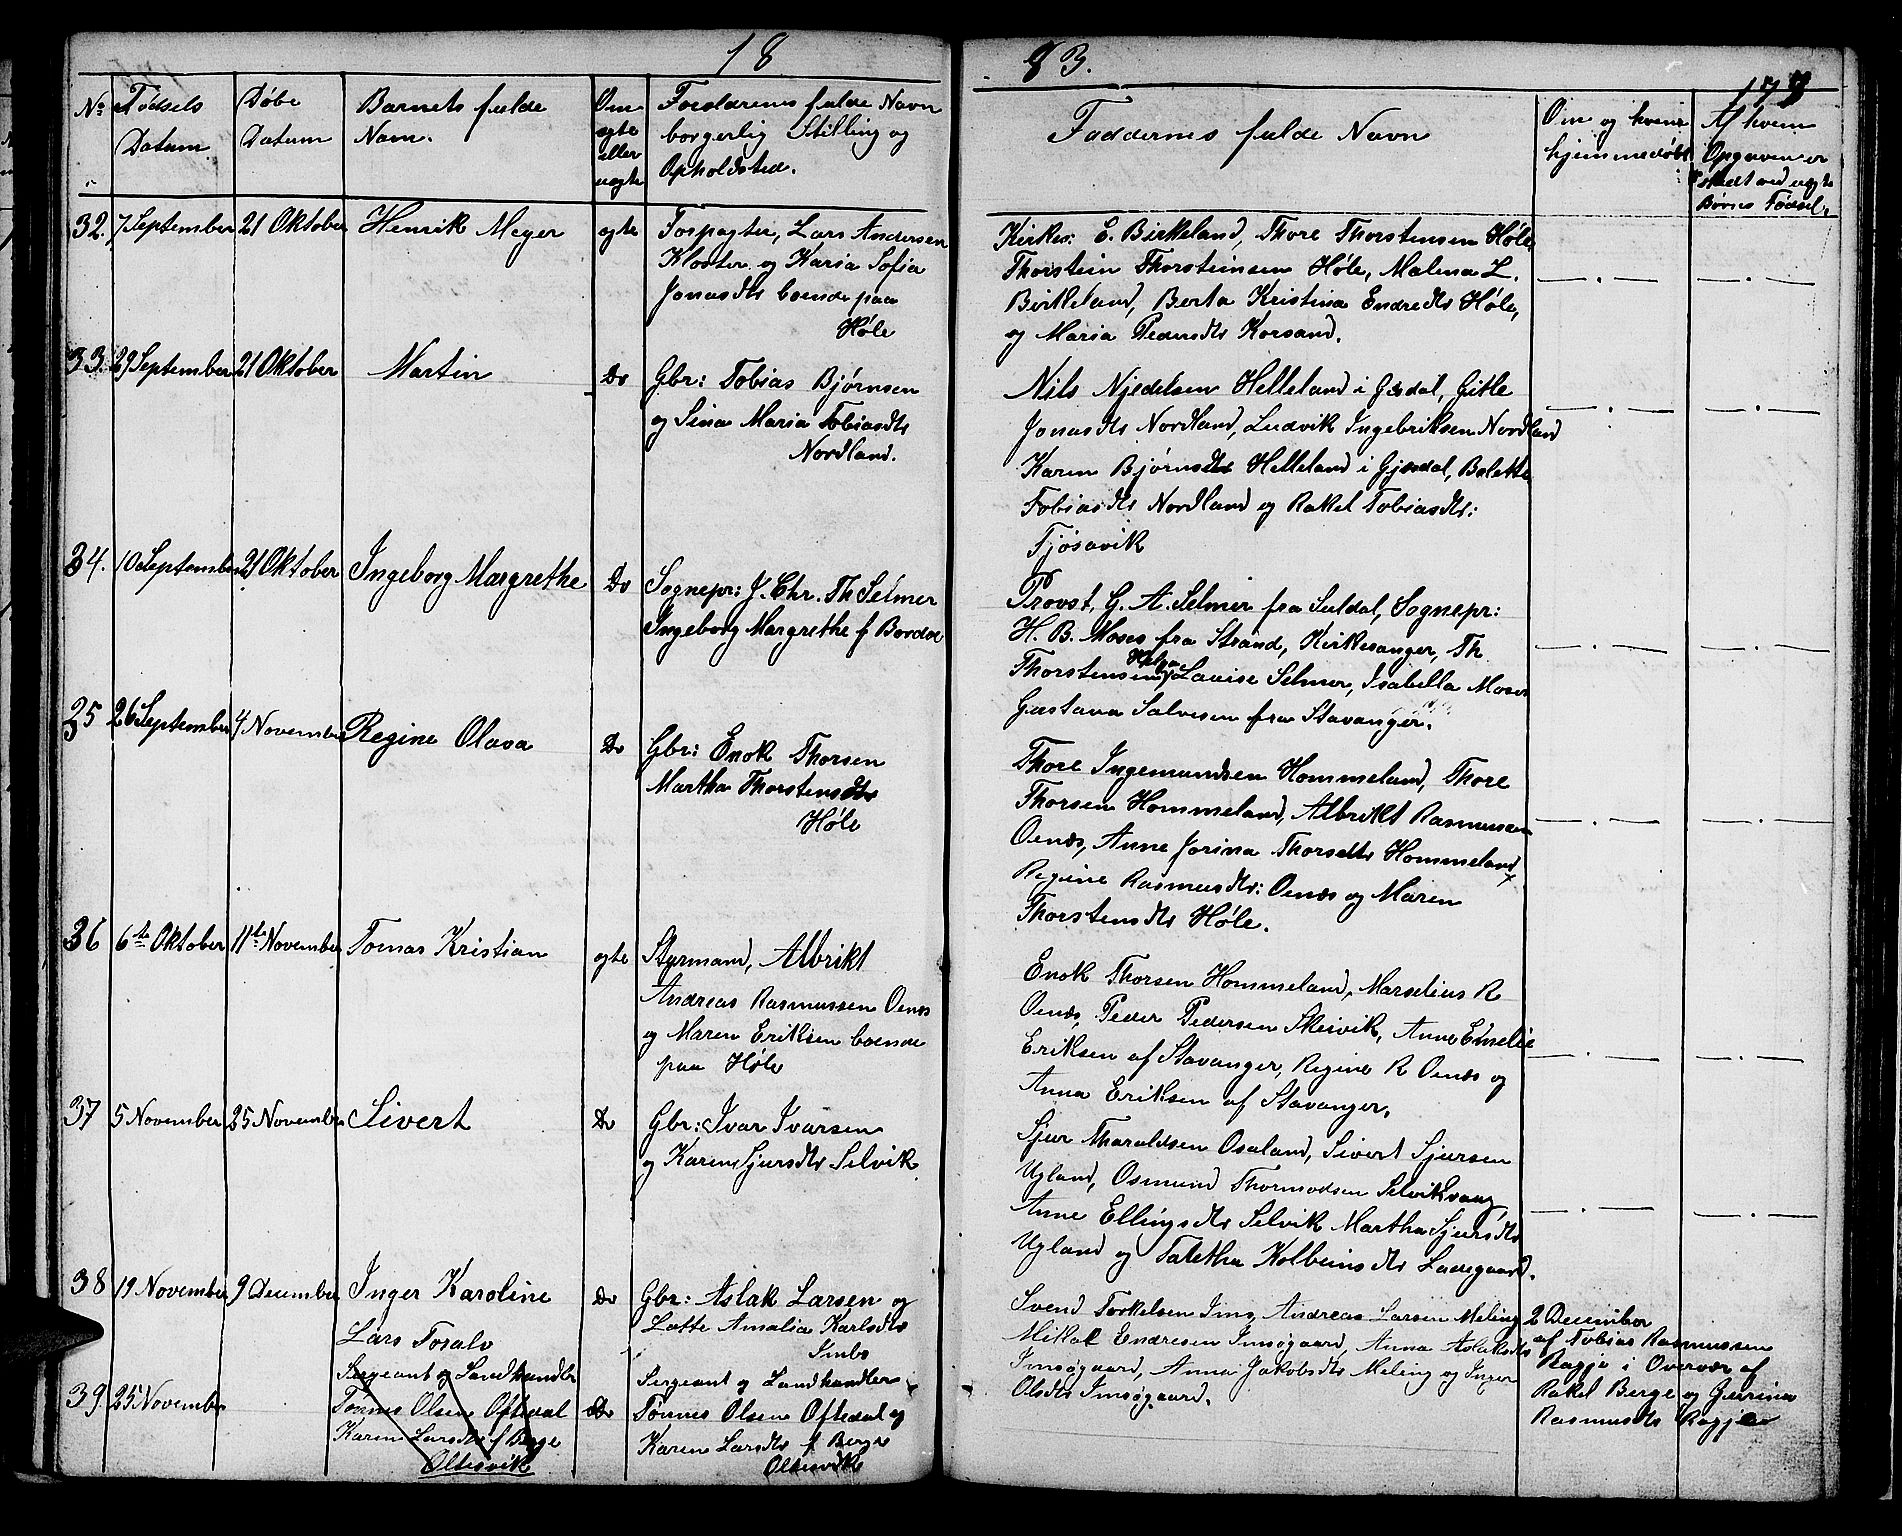 18
83.
179
No
Fødsels
Datum
Døbe
Datum
Barnets fulde
Navn.
Om
ægte
eller
uægte
Forældrenes fulde Navn
borgerlig Stilling og
Opholdsted.
Faddernes fulde Navn
Om og hvem
hjemmedøbt
Af hvem
Opgaven er
skedt ved uægte
Børnes Fødsel.
32. 7 September 21 Oktober Henrik Meyer ægte Forpagter, Lars Andersen
Kloster og Karia Sofia
Jonasdtr boende paa
Høle
Kirkes: E. Birkeland, Thore Thorstensen Høle,
Thorstein Thorsteinsen Høle, Malena L.
Birkeland, Berta Kristina Endredtr Høle,
og Maria Pedersdtr Korsand.
33. 29 September 21 Oktober Martin Do Gbr: Tobias Bjørnsen
og Sina Maria Tobiasdtr
Nordland.
Nils Njedelsen Helleland i Gjesdal, Gitle
Jonasdtr Nordland, Ludvik Ingebriksen Nordland
Karen Bjørnsdtr Helleland i Gjesdal, Bolette
Tobiasdtr Nordland og Rakel Tobiasdtr:
Fjøsavik
34. 10 September 21 Oktober Ingeborg Margrethe Do Sognepr: J. Chr. Th Selmer
Ingeborg Margrethe f Bordoe
Provst, G. A. Selmer fra Suldal, Sognepr:
H. B. Moses fra Strand, Kirkesanger, Th
Thorstensen, Helga Lauise Selmer, Isabella Moses
Gustava Salvesen fra Stavanger.
35 26 September 4 November Regine Olava Do Gbr: Enok Thorsen
Martha Thorstensdtr
Høle
Thore Ingemundsen Hommeland, Thore
Thorsen Hommeland, Albrikt Rasmussen
Oenæs, Anne Jorina Thorsdtr Hommeland
Regine Rasmusdtr: Oenæs og Maren
Thorstensdtr Høle.
36 6te Oktober 11te November Tomas Kristian ægte Styrmand, Albrikt
Andreas Rasmussen Oenæs
og Maren Eriksen boende
paa Høle
Enok Thorsen Hommeland, Marselius R
Oenæs, Peder Pedersen Skeivik, Anne Emelie
Eriksen af Stavanger, Regine R Oenæs og
Anna Eriksen af Stavanger.
37 5 November 25 November Sivert Do Gbr: Ivar Ivarsen
og Karen Sjursdtr Selvik
Sjur Tharaldsen Osaland, Sivert Sjursen
Ugland, Osmund Thormodsen Selviksvaag
Anne Ellingsdtr Selvik Martha Sjursdtr
Ugland og Taletha Kolbeinsdtr Ladegaard.
38 19 November 9 December Inger Karoline Do Gbr: Aslak Larsen og
Lotte Amalia Karlsdtr
Imbs
Svend Torkelsen Ims, Andreas Larsen Meling
Mikal Endresen Imsøgaard, Anna Aslaksdtr
Imsøgaard, Anna Jakobsdtr Meling og Inger
Olsdtr Imsøgaard.
2 December
af Tobias Rasmussen
Ragje i Overvær af
Rakel Berge og Gurina
Rasmusdtr Ragje
39. 25 November
Lars Tosalv
Sergeant og Landhandler
Tønnes Olsen Oftedal
Karen Larsdtr f Berge
Oltesvik
Do
Sergeant og Landhandler
Tønnes Olsen Oftedal og
Karen Larsdtr f Berge
Oltesvik